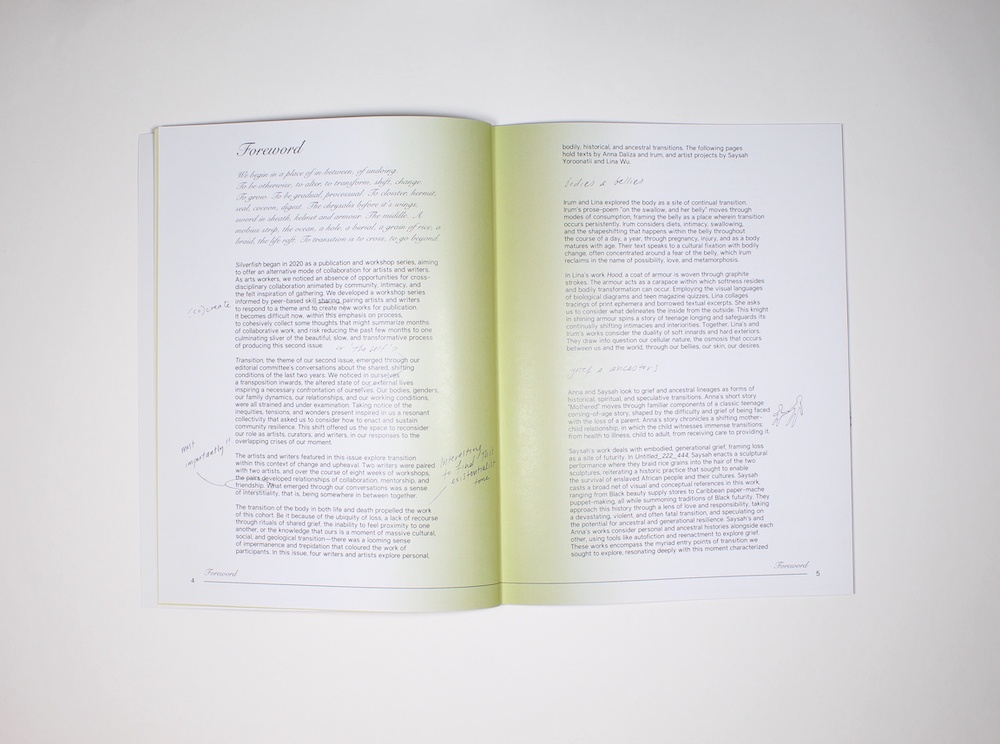 Foreword
We begin in a place of in-between, of undoing.
To be otherwise, to alter, to transform, shift, change.
To grow. To be gradual, processual. To cloister, hermit,
seal, cocoon, digest. The chrysalis before it's wings,
sword in sheath, helmet and armour. The middle. A
mobius strip, the ocean, a hole, a burial, a grain of rice, a
braid, the life raft. To transition is to cross, to go beyond.
Silverfish began in 2020 as a publication and workshop series, aiming
to offer an alternative mode of collaboration for artists and writers.
As arts workers, we noticed an absence of opportunities for cross-
disciplinary collaboration animated by community, intimacy, and
the felt inspiration of gathering. We developed a workshop series
informed by peer-based skill sharing, pairing artists and writers
(co)create
to respond to a theme and to create new works for publication.
It becomes difficult now, within this emphasis on process,
to cohesively collect some thoughts that might summarize months
of collaborative work, and risk reducing the past few months to one
culminating sliver of the beautiful, slow, and transformative process
of producing this second issue.
or "the self"?
Transition, the theme of our second issue, emerged through our
editorial committee's conversations about the shared, shifting
conditions of the last two years. We noticed in ourselves
a transposition inwards, the altered state of our external lives
inspiring a necessary confrontation of ourselves. Our bodies, genders,
our family dynamics, our relationships, and our working conditions,
were all strained and under examination. Taking notice of the
inequities, tensions, and wonders present inspired in us a resonant
collectivity that asked us to consider how to enact and sustain
community resilience. This shift offered us the space to reconsider
our role as artists, curators, and writers, in our responses to the
overlapping crises of our moment.
most
importantly!!
The artists and writers featured in this issue explore transition
within this context of change and upheaval. Two writers were paired
with two artists, and over the course of eight weeks of workshops,
the pairs developed relationships of collaboration, mentorship, and
friendship. What emerged through our conversations was a sense
of interstitiality, that is, being somewhere in between together.
interesting
to find this
existential
tone
The transition of the body in both life and death propelled the work
of this cohort. Be it because of the ubiquity of loss, a lack of recourse
through rituals of shared grief, the inability to feel proximity to one
another, or the knowledge that ours is a moment of massive cultural,
social, and geological transition—there was a looming sense
of impermanence and trepidation that coloured the work of
participants. In this issue, four writers and artists explore personal,
4
Foreword
bodily, historical, and ancestral transitions. The following pages
hold texts by Anna Daliza and Irum, and artist projects by Saysah
Yoroonatii and Lina Wu.
bodies & bellies
Irum and Lina explored the body as a site of continual transition.
Irum's prose-poem "on the swallow, and her belly" moves through
modes of consumption, framing the belly as a place wherein transition
occurs persistently. Irum considers diets, intimacy, swallowing,
and the shapeshifting that happens within the belly throughout
the course of a day, a year, through pregnancy, injury, and as a body
matures with age. Their text speaks to a cultural fixation with bodily
change, often concentrated around a fear of the belly, which Irum
reclaims in the name of possibility, love, and metamorphosis.
In Lina's work Hood, a coat of armour is woven through graphite
strokes. The armour acts as a carapace within which softness resides
and bodily transformation can occur. Employing the visual languages
of biological diagrams and teen magazine quizzes, Lina collages
tracings of print ephemera and borrowed textual excerpts. She asks
us to consider what delineates the inside from the outside. This knight
in shining armour spins a story of teenage longing and safeguards its
continually shifting intimacies and interiorities. Together, Lina's and
Irum's works consider the duality of soft innards and hard exteriors.
They draw into question our cellular nature, the osmosis that occurs
between us and the world, through our bellies, our skin, our desires.
grief & ancestors
Anna and Saysah look to grief and ancestral lineages as forms of
historical, spiritual, and speculative transitions. Anna's short story
"Mothered" moves through familiar components of a classic teenage
coming-of-age story, shaped by the difficulty and grief of being faced
with the loss of a parent. Anna's story chronicles a shifting mother-
child relationship, in which the child witnesses immense transitions:
from health to illness, child to adult, from receiving care to providing it.
Saysah's work deals with embodied, generational grief, framing loss
as a site of futurity. In Untitled_222_444, Saysah enacts a sculptural
performance where they braid rice grains into the hair of the two
sculptures, reiterating a historic practice that sought to enable
the survival of enslaved African people and their cultures. Saysah
casts a broad net of visual and conceptual references in this work,
ranging from Black beauty supply stores to Caribbean paper-mache
puppet-making, all while summoning traditions of Black futurity. They
approach this history through a lens of love and responsibility, taking
a devastating, violent, and often fatal transition, and speculating on
the potential for ancestral and generational resilience. Saysah's and
Anna's works consider personal and ancestral histories alongside each
other, using tools like autofiction and reenactment to explore grief.
These works encompass the myriad entry points of transition we
sought to explore, resonating deeply with this moment characterized
Foreword
5